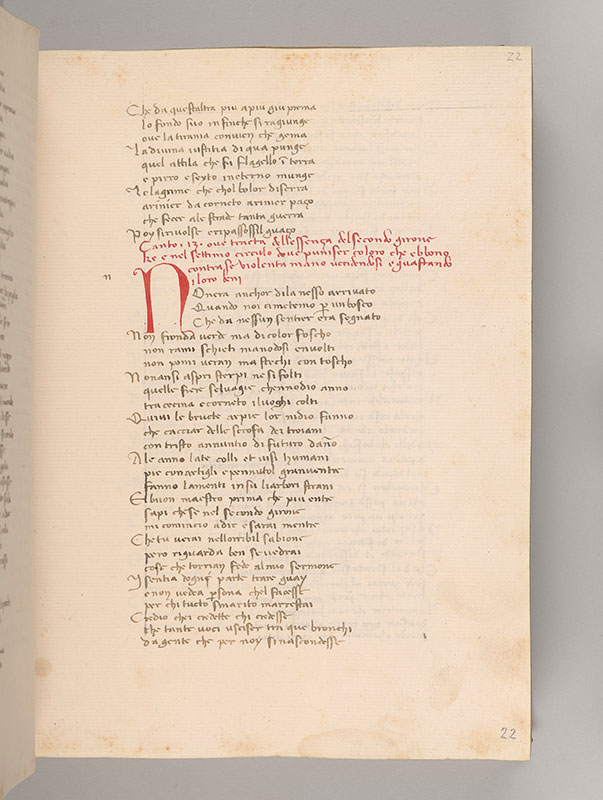 22
Che da questaltra piu apiu giu prema
lo fondo suo infinche si ragiunge
oue la tirania conuien che gema
La diuina iustitia di qua punge
quel attila che fu flagello ī terra
e pirro e sexto in eterno munge
Le lagrime che chol bolor diserra
arinier da corneto arinier paço
che fecer ale strade tanta guerra
Poy si riuolse e ripassossil guaço
Canto .13. oue tracta dell essença del secondo girone
ke e nel settimo circulo doue puniser coloro che ebbono
contra se violenta mano uccidendosi e guastando
i loro beni
n
Non era anchor di la nesso arriuato
Quando noi ci metemo p un bosco
Che da nessun sentier era segnato
Non fronda uerde ma di color foscho
non rami schieti ma nodosi enuolti
non pomi ueran ma stechi con toscho
Non ansi aspri sterpi ne si folti
quelle fiere seluagie chennodio anno
tra cecina e corneto i luoghi colti
Quiui le bructe arpie lor nidio fanno
che cacciar delle strofa dei troiani
con tristo annuntio di futuro dāno
Ale anno late colli et uisi humani
pie con artigli e pennutol gran uentre
fanno lamenti in su li arbori strani
El buon maestro prima che piu entre
sapi che se nel secondo girone
mi comincio a dir e sarai mentre
Che tu uerai nell orribil sabione
pero riguarda ben se uedrai
cose che torrian fede al mio sermone
I sentia dogni parte trare guay
e non uedea psona chel facesse
per chi tucto smarito marrestai
Credio chei credette chi credesse
che tante uoci uscisser tra que bronchi
da gente che per noy si nascondesse
22